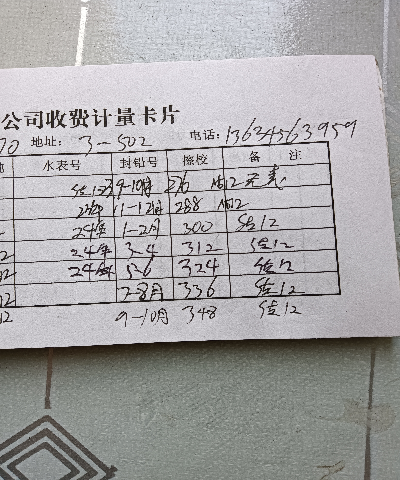 公司收费计量卡片
70 地址: 3-502 电话: 13634563959
水表号 封铅号 擦校 备 注
9-10月 276 估12 无表
23年 11-12月 288 估12
24年 1-2月 300 估12
24年 3-4 312 估12
24年 5-6 324 估12
7-8月 336 估12
9-10月 348 估12